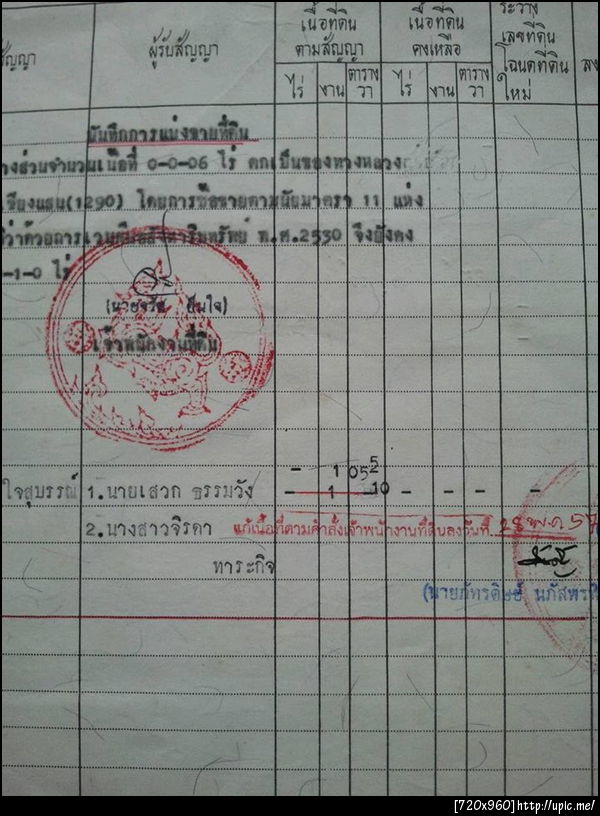 เนื้อที่ดิน เนื้อที่ดิน ระวาง
ผู้รับสัญญา ตามสัญญา คงเหลือ เลขที่ดิน
สัญญา โฉนดที่ดิน
ไร่ งาน ตาราง วา ไร่ งาน ตาราง วา ใหม่
บันทึกการแบ่งขายที่ดิน
างส่วนจำนวนเนื้อที่ 0-0-06 ไร่ ตกเป็นของทางหลวง
เชียงแสน(1290) โดยการซื้อขายตามนัยมาตรา 11 แห่ง
ว่าด้วยการเวนคืนอสังหาริมทรัพย์ พ.ศ.2530 จึงยังคง
-1-0 ไร่
ปันใจ)
เจ้าพนักงานที่ดิน
- 1 05
ใจสุบรรณ์ 1.นายเสวก ธรรมวัง - 1 10 - - - -
2.นางสาวจิรดา แก้เนื้อที่ตามคำสั่งเจ้าพนักงานที่ดินลงวันที่ 28 พ.ค 57
ทาระกิจ
(นายภัทรดิษย์
[720x960]http://upic.me/